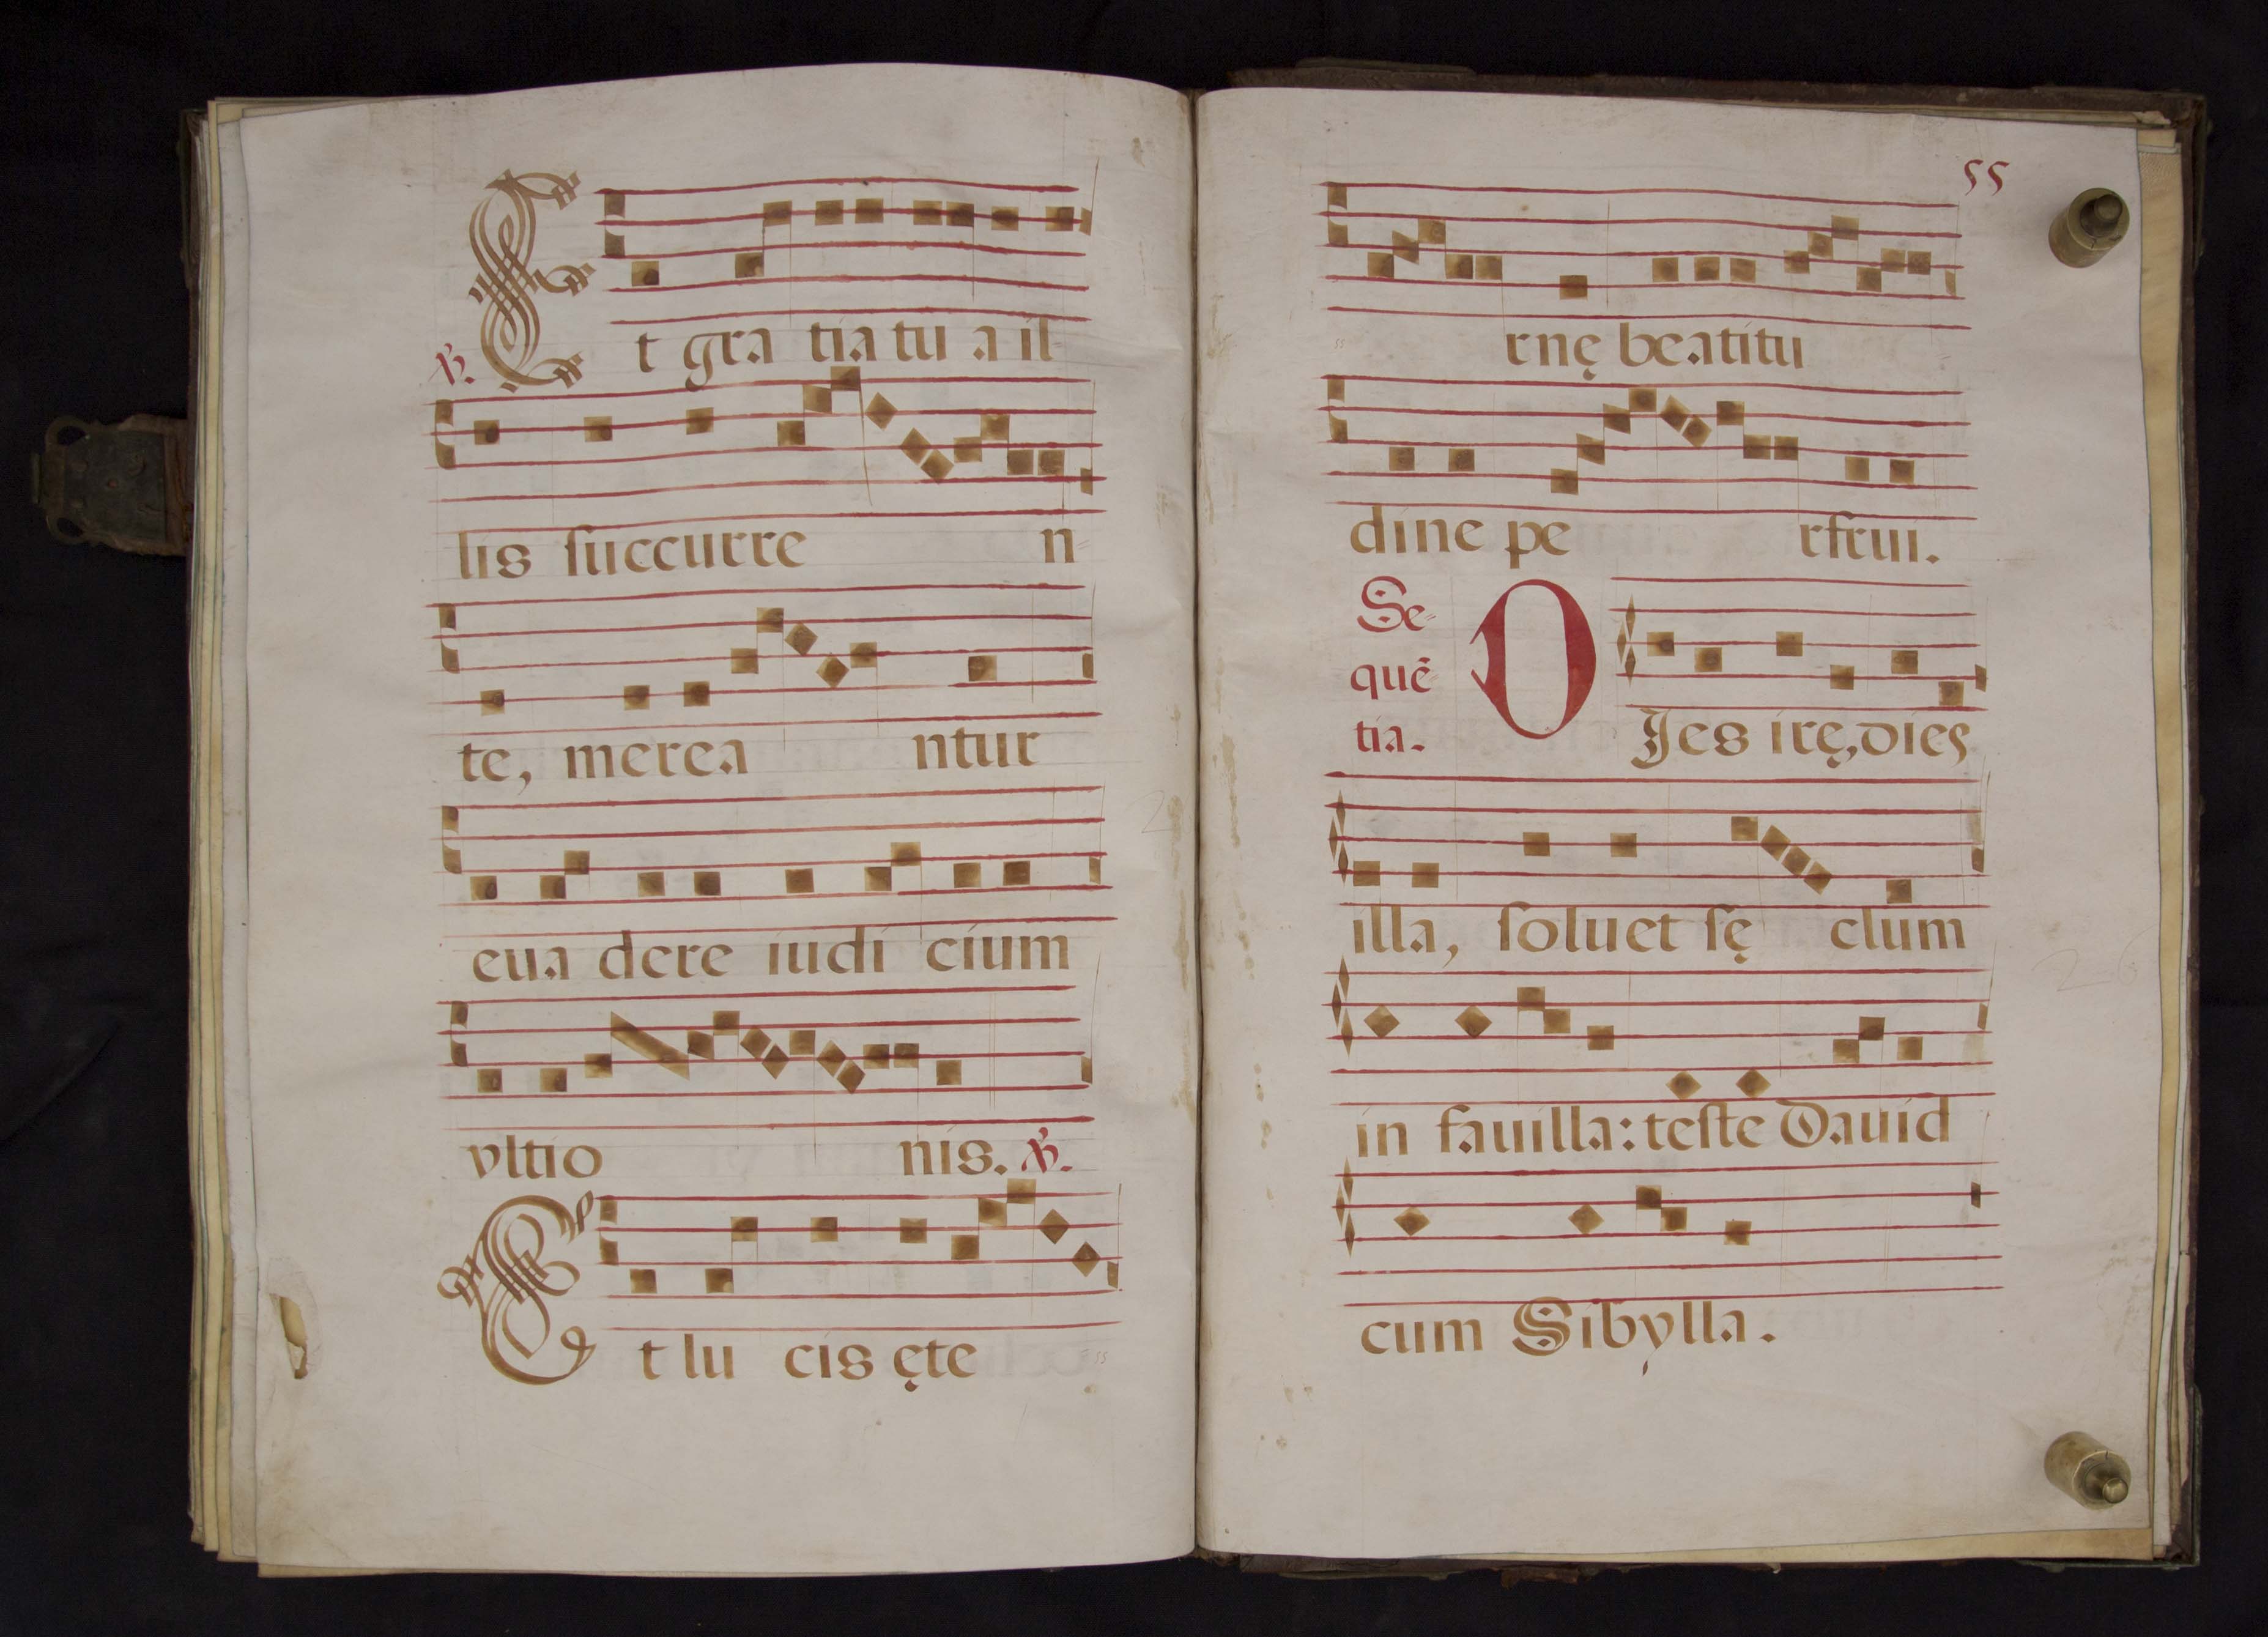 ℣. Et gra tia tu a il-
lis ſuccurre n=
te, merea ntur
eua dere iudi cium
vltio nis. ℣.
Et lu cis ęte =
55
rnę beatitu =
dine pe rfrui.
Se=
quē
tia.
DJes irę, dies
illa, ſoluet ſę clum
in fauilla: teſte Dauid
cum Sibylla.